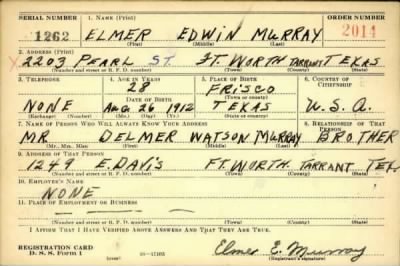 SERIAL NUMBER 1. NAME (Print) ORDER NUMBER
1262 ELMER EDWIN MURRAY 2014
(First) (Middle) (Last)
2. ADDRESS (Print)
X 2203 PEARL ST. FT. WORTH TARRANT TEXAS
(Number and street or R. F. D. number) (Town) (County) (State)
3. TELEPHONE 4. AGE IN YEARS 5. PLACE OF BIRTH 6. COUNTRY OF CITIZENSHIP
28 FRISCO
DATE OF BIRTH (Town or county)
NONE Aug 26 1912 TEXAS U.S.A.
(Exchange) (Number) (Mo.) (Day) (Yr.) (State or country)
7. NAME OF PERSON WHO WILL ALWAYS KNOW YOUR ADDRESS 8. RELATIONSHIP OF THAT PERSON
MR DELMER WATSON MURRAY BROTHER
(Mr., Mrs., Miss) (First) (Middle) (Last)
9. ADDRESS OF THAT PERSON
1249 E. DAVIS FT. WORTH. TARRANT TEX
(Number and street or R. F. D. number) (Town) (County) (State)
10. EMPLOYER'S NAME
NONE
11. PLACE OF EMPLOYMENT OR BUSINESS
(Number and street or R. F. D. number) (Town) (County) (State)
I AFFIRM THAT I HAVE VERIFIED ABOVE ANSWERS AND THAT THEY ARE TRUE.
REGISTRATION CARD
D. S. S. Form 1 Elmer E. Murray
(Registrant's signature)